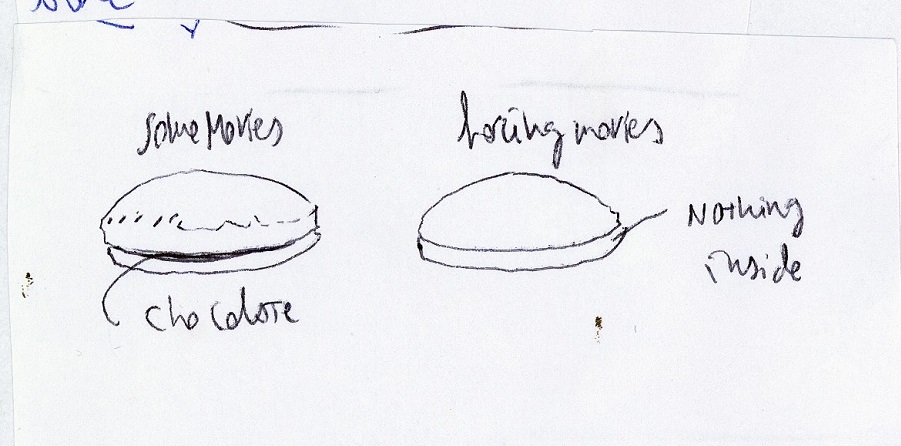 some Movies
boring movies
Nothing
inside
chocolate